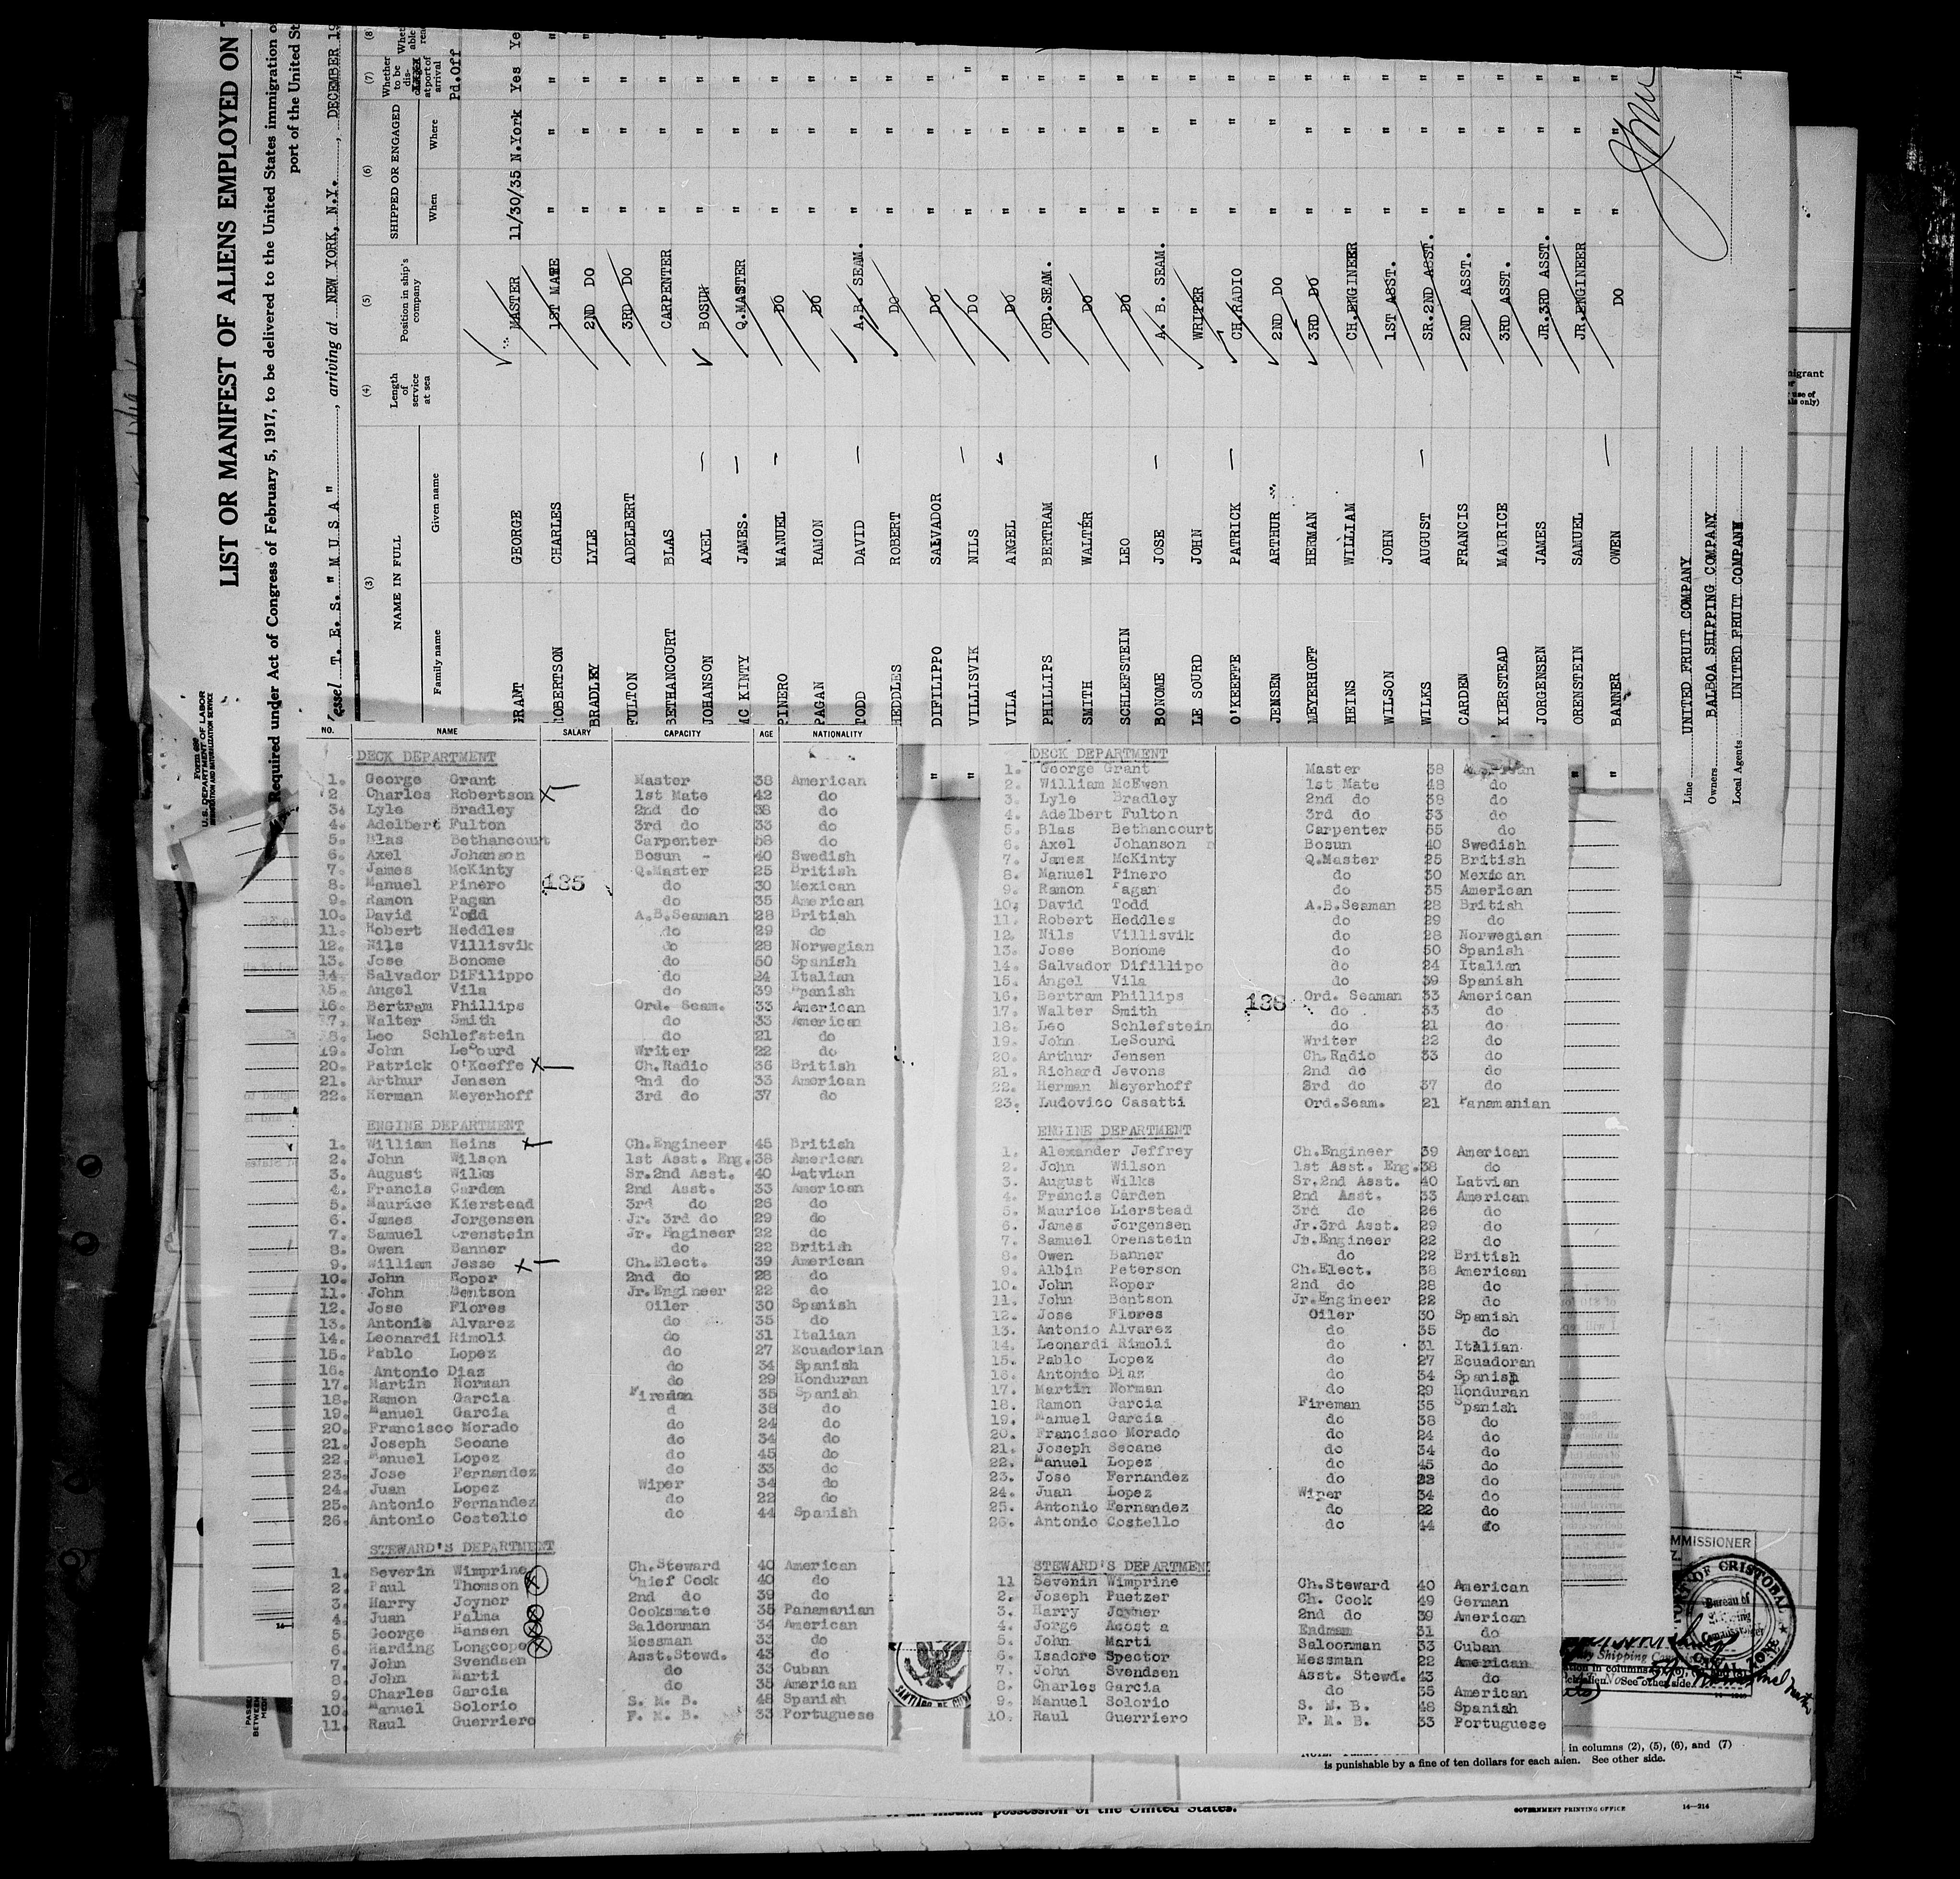 LIST OR MANIFEST OF ALIENS EMPLOYED ON
Required under Act of Congress of February 5, 1917, to be delivered to the United States immigration
port of the United
Form 689
U.S. DEPARTMENT OF LABOR
IMMIGRATION AND NATURALIZATION SERVICE
essel T. E. S. " M U S A " , arriving at NEW YORK, N.Y. , DECEMBER
(3) (4) (5) (6) (7) (8)
NAME IN FULL Length of service at sea Position in ship's company SHIPPED OR ENGAGED Whether to be dis- at port of arrival
Family name Given name When Where Pd.Off
GRANT GEORGE MASTER 11/30/35 N.York Yes Ye
ROBERTSON CHARLES 1ST MATE " " "
BRADLEY LYLE 2ND DO " " "
FULTON ADELBERT 3RD DO " " "
BETHANCOURT BLAS CARPENTER " " "
JOHANSON AXEL BOSUN " " "
MC KINTY JAMES. Q.MASTER " " "
PINERO MANUEL DO " " "
PAGAN RAMON DO " " "
TODD DAVID A.B. SEAM. " " "
HEDDLES ROBERT DO " " "
DIFILIPPO SALVADOR DO " " "
VILLISVIK NILS DO " " "
VILA ANGEL DO " " "
PHILLIPS BERTRAM ORD.SEAM. " " "
SMITH WALTER DO " " "
SCHLEFSTEIN LEO DO " " "
BONOME JOSE A. B. SEAM. " " "
LE SOURD JOHN WRITER " " "
O'KEEFFE PATRICK CH.RADIO " " "
JENSEN ARTHUR 2ND DO " " "
MEYERHOFF HERMAN 3RD DO " " "
HEINS WILLIAM CH.ENGINEER " " "
WILSON JOHN 1ST ASST. " " "
WILKS AUGUST SR.2ND ASST. " " "
CARDEN FRANCIS 2ND ASST. " " "
KIERSTEAD MAURICE 3RD ASST. " " "
JORGENSEN JAMES JR.3RD ASST. " " "
ORENSTEIN SAMUEL JR.ENGINEER " " "
BANNER OWEN DO " " "
Line UNITED FRUIT COMPANY
Owners BALBOA SHIPPING COMPANY
Local Agents UNITED FRUIT COMPANY
NO. NAME SALARY CAPACITY AGE NATIONALITY
DECK DEPARTMENT
1. George Grant Master 38 American
2. Charles Robertson 1st Mate 42 do
3. Lyle Bradley 2nd do 38 do
4. Adelbert Fulton 3rd do 33 do
5. Blas Bethancourt Carpenter 58 do
6. Axel Johanson Bosun - 40 Swedish
7. James McKinty Q.Master 25 British
8. Manuel Pinero do 30 Mexican
185
9. Ramon Pagan do 35 American
10. David Todd A.B.Seaman 28 British
11. Robert Heddles do 29 do
12. Nils Villisvik do 28 Norwegian
13. Jose Bonome do 50 Spanish
14. Salvador DiFilippo do 24 Italian
15. Angel Vila do 39 Spanish
16. Bertram Phillips Ord. Seam. 33 American
17. Walter Smith do 33 American
18. Leo Schlefstein do 21 do
19. John LeSourd Writer 22 do
20. Patrick O'Keeffe Ch.Radio 36 British
21. Arthur Jensen 2nd do 33 American
22. Herman Meyerhoff 3rd do 37 do
ENGINE DEPARTMENT
1. William Heins Ch.Engineer 45 British
2. John Wilson 1st Asst. Eng. 38 American
3. August Wilks Sr.2nd Asst. 40 Latvian
4. Francis Carden 2nd Asst. 33 American
5. Maurice Kierstead 3rd do 26 do
6. James Jorgensen Jr. 3rd do 29 do
7. Samuel Orenstein Jr. Engineer 22 do
8. Owen Banner do 22 British
9. William Jesse Ch.Elect. 39 American
10. John Roper 2nd do 28 do
11. John Bentson Jr.Engineer 22 do
12. Jose Flores Oiler 30 Spanish
13. Antonio Alvarez do 35 do
14. Leonardi Rimoli do 31 Italian
15. Pablo Lopez do 27 Ecuadorian
16. Antonio Diaz do 34 Spanish
17. Martin Norman do 29 Honduran
18. Ramon Garcia Fireman 35 Spanish
19. Manuel Garcia d 38 do
20. Francisco Morado do 24 do
21. Joseph Seoane do 34 do
22. Manuel Lopez do 45 do
23. Jose Fernandez do 33 do
24. Juan Lopez Wiper 34 do
25. Antonio Fernandez do 22 do
26. Antonio Costello do 44 Spanish
STEWARD'S DEPARTMENT
1. Severin Wimprine Ch.Steward 40 American
2. Paul Thomson Chief Cook 40 do
3. Harry Joyner 2nd do 39 do
4. Juan Palma Cooksmate 35 Panamanian
5. George Hansen Saldenman 34 American
6. Harding Longcope Messman 33 do
7. John Svendsen Asst.Stewd. 43 do
8. John Marti do 33 Cuban
9. Charles Garcia do 35 American
10. Manuel Solorio S. M. B. 48 Spanish
11. Raul Guerriero F. M. B. 33 Portuguese
DECK DEPARTMENT
1. George Grant Master 38
2. William McEwen 1st Mate 48 do
3. Lyle Bradley 2nd do 38 do
4. Adelbert Fulton 3rd do 33 do
5. Blas Bethancourt Carpenter 55 do
6. Axel Johanson Bosun 40 Swedish
7. James McKinty Q.Master 25 British
8. Manuel Pinero do 30 Mexican
9. Ramon Pagan do 35 American
10. David Todd A.B.Seaman 28 British
11. Robert Heddles do 29 do
12. Nils Villisvik do 28 Norwegian
13. Jose Bonome do 50 Spanish
14. Salvador Difillipo do 24 Italian
15. Angel Vila do 39 Spanish
16. Bertram Phillips Ord. Seaman 33 American
17. Walter Smith do 33 do
18. Leo Schlefstein do 21 do
19. John LeSourd Writer 22 do
20. Arthur Jensen Ch.Radio 33 do
21. Richard Jevons 2nd do do
22. Herman Meyerhoff 3rd do 37 do
23. Ludovico Casatti Ord.Seam. 21 Panamanian
ENGINE DEPARTMENT
1. Alexander Jeffrey Ch.Engineer 39 American
2. John Wilson 1st Asst. Eng. 38 do
3. August Wilks Sr.2nd Asst. 40 Latvian
4. Francis Carden 2nd Asst. 33 American
5. Maurice Lierstead 3rd do 26 do
6. James Jorgensen Jr.3rd Asst. 29 do
7. Samuel Orenstein Jr.Engineer 22 do
8. Owen Banner do 22 British
9. Albin Peterson Ch.Elect. 38 American
10. John Roper 2nd do 28 do
11. John Bentson Jr.Engineer 22 do
12. Jose Flores Oiler 30 Spanish
13. Antonio Alvarez do 35 do
14. Leonardi Rimoli do 31 Italian
15. Pablo Lopez do 27 Ecuadoran
16. Antonio Diaz do 34 Spanish
17. Martin Norman do 29 Honduran
18. Ramon Garcia Fireman 35 Spanish
19. Manuel Garcia do 38 do
20. Francisco Morado do 24 do
21. Joseph Seoane do 34 do
22. Manuel Lopez do 45 do
23. Jose Fernandez do do
24. Juan Lopez Wiper 34 do
25. Antonio Fernandez do 22 do
26. Antonio Costello do 44 do
STEWARD'S DEPARTMENT
11 Severin Wimprine Ch.Steward 40 American
2. Joseph Puetzer Ch. Cook 49 German
3. Harry Joyner 2nd do 39 American
4. Jorge Acost a Endman 31 do
5. John Marti Saloonman 33 Cuban
6. Isadore Spector Messman 22 American
7. John Svendsen Asst. Stewd. 43 do
8. Charles Garcia do 35 American
9. Manuel Solorio S. M. B. 48 Spanish
10. Raul Guerriero F. M. B. 33 Portuguese
MMISSIONER
OF CRISTOBAL
Bureau of
Shipping
Commissioner
CANAL ZONE
Shipping Commissioner
See other side.
SANTIAGO DE CU
in columns (2), (5), (6), and (7)
is punishable by a fine of ten dollars for each alien. See other side.
of an insular possession of the United States.
GOVERNMENT PRINTING OFFICE 14—214